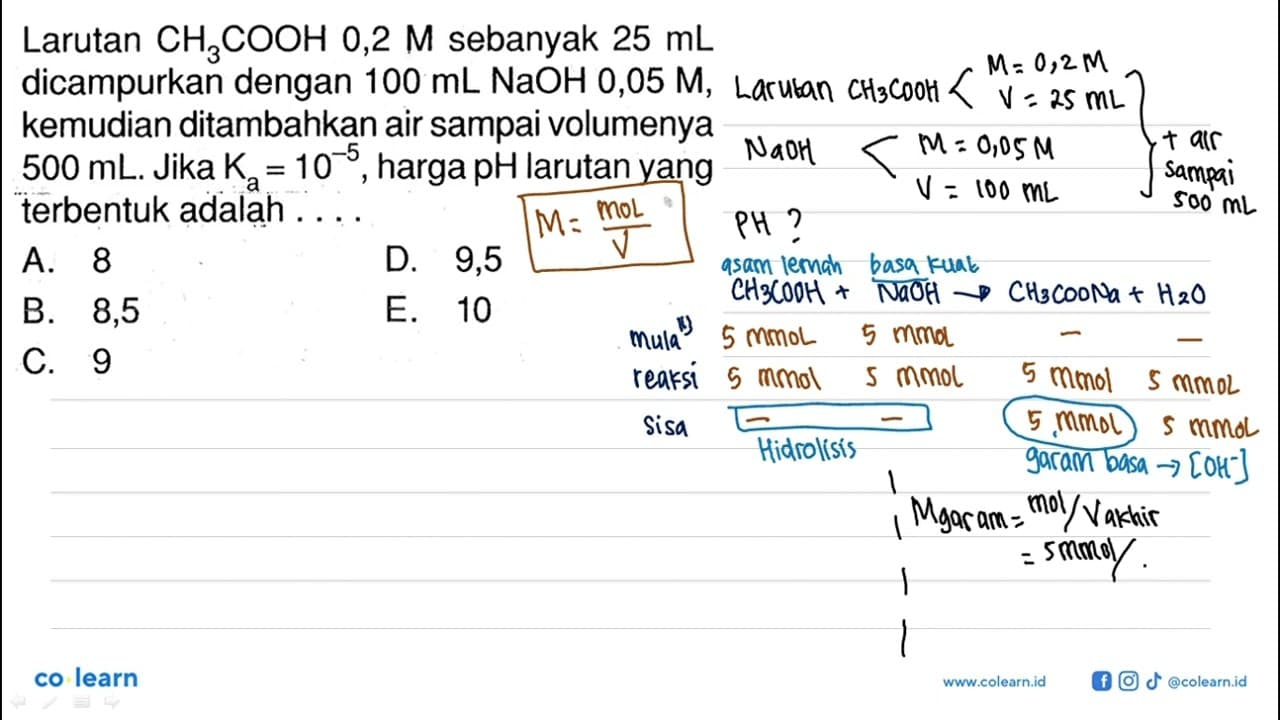 Larutan CH₃COOH 0,2 M sebanyak 25 mL
dicampurkan dengan 100 mL NaOH 0,05 M,
kemudian ditambahkan air sampai volumenya
500 mL. Jika Kₐ = 10⁻⁵, harga pH larutan yang
terbentuk adalah . . . .
A. 8
B. 8,5
C. 9
D. 9,5
E. 10
M = mol/V
Larutan CH3COOH < M = 0,2 M
V = 25 mL
NaOH < M = 0,05 M
V = 100 mL
+ air
sampai
500 mL
PH ?
asam lemah basa kuat
CH3COOH + NaOH → CH3COONa + H2O
mula²) 5 mmol 5 mmol - -
reaksi 5 mmol 5 mmol 5 mmol 5 mmol
sisa - - 5 mmol 5 mmol
Hidrolisis
garam basa → [OH⁻]
Mgaram = mol/Vakhir
= 5 mmol/.
co learn
www.colearn.id
@colearn.id